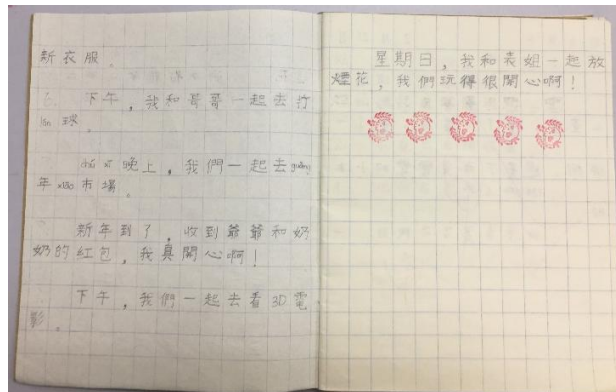 新衣服。
下午，我和哥哥一起去打
lán 球。
chú xī 晚上，我們一起去 guàng
年 xiāo 市場。
新年到了，收到爺爺和奶
奶的紅包，我真開心啊！
下午，我們一起去看3D電
影。
星期日，我和表姐一起放
煙花，我們玩得很開心啊！